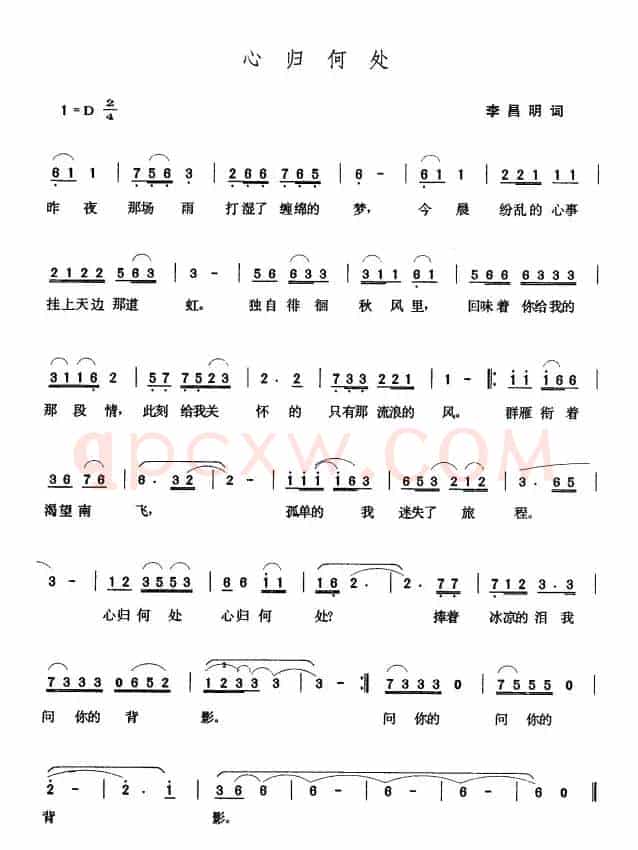 心归何处
1=D 2/4 李昌明 词
6 1 1 | 7 5 6 3 | 2 6 6 7 6 5 | 6 - | 6 1 1 | 2 2 1 1 1 |
昨夜 那场雨 打湿了缠绵的 梦, 今晨 纷乱的心事
2 1 2 2 5 6 3 | 3 - | 5 6 6 3 3 | 3 1 1 6 1 | 5 6 6 6 3 3 3 |
挂上天边那道 虹。 独自徘徊 秋风里, 回味着你给我的
3 1 1 6 2 | 5 7 7 5 2 3 | 2 · 2 | 7 3 3 2 2 1 | 1 - |: i i i 6 6 |
那段情, 此刻给我关 怀的 只有那流浪的 风。 群雁衔着
qpcxw.COM
3 6 7 6 | 6 . 3 2 | 2 - | i i i i 6 3 | 6 5 3 2 1 2 | 3 . 6 5 |
渴望南 飞, 孤单的我 迷失了旅 程。
3 - | 1 2 3 5 5 3 | 6 6 i i | 1 6 2 . | 2 . 7 7 | 7 1 2 3 . 3 |
心归何处 心归何 处? 捧着 冰凉的泪我
7 3 3 3 0 6 5 2 | 1 2 3 3 3 | 3 - :| 7 3 3 3 0 | 7 5 5 5 0 |
问你的背 影。 问你的 问你的
2 - | 2 . i | 3 6 6 6 | 6 - | 6 - | 6 0 ‖
背 影。